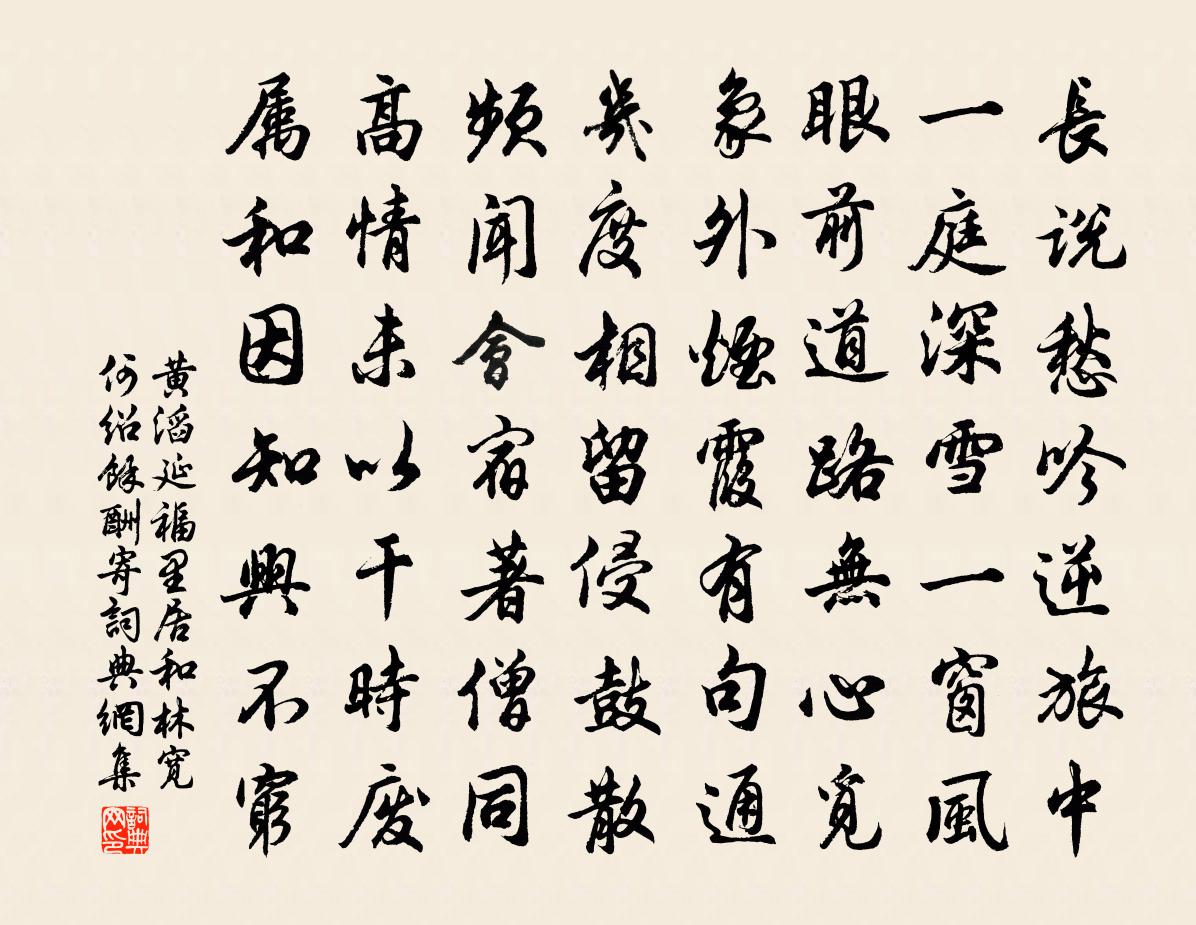 長説愁吟逆旅中
一庭深雪一窗風
眼前道路無心覓
象外煙霞有句通
幾度相留侵鼓散
頻聞會宿著僧同
高情未以干時废
属和因知興不窮
黄滔延福里居和林寬
何紹餘酬寄詞典網集
詞典
网印